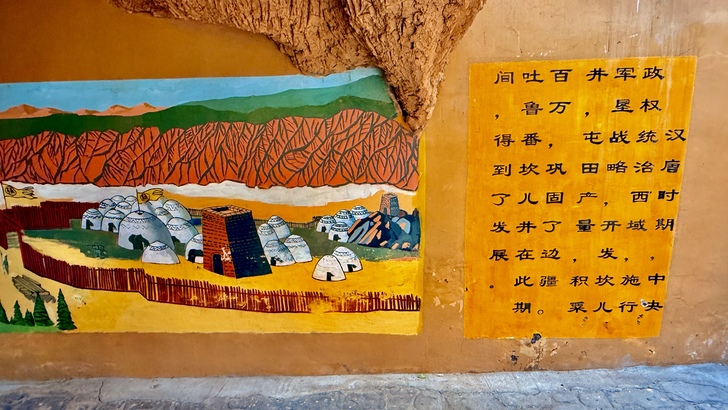 汉唐时期，中央
政权统治西域，施行
军垦战略，开发坎儿
井，屯田产量，积采
百万，巩固了边疆。
吐鲁番坎儿井在此期
间，得到了发展。